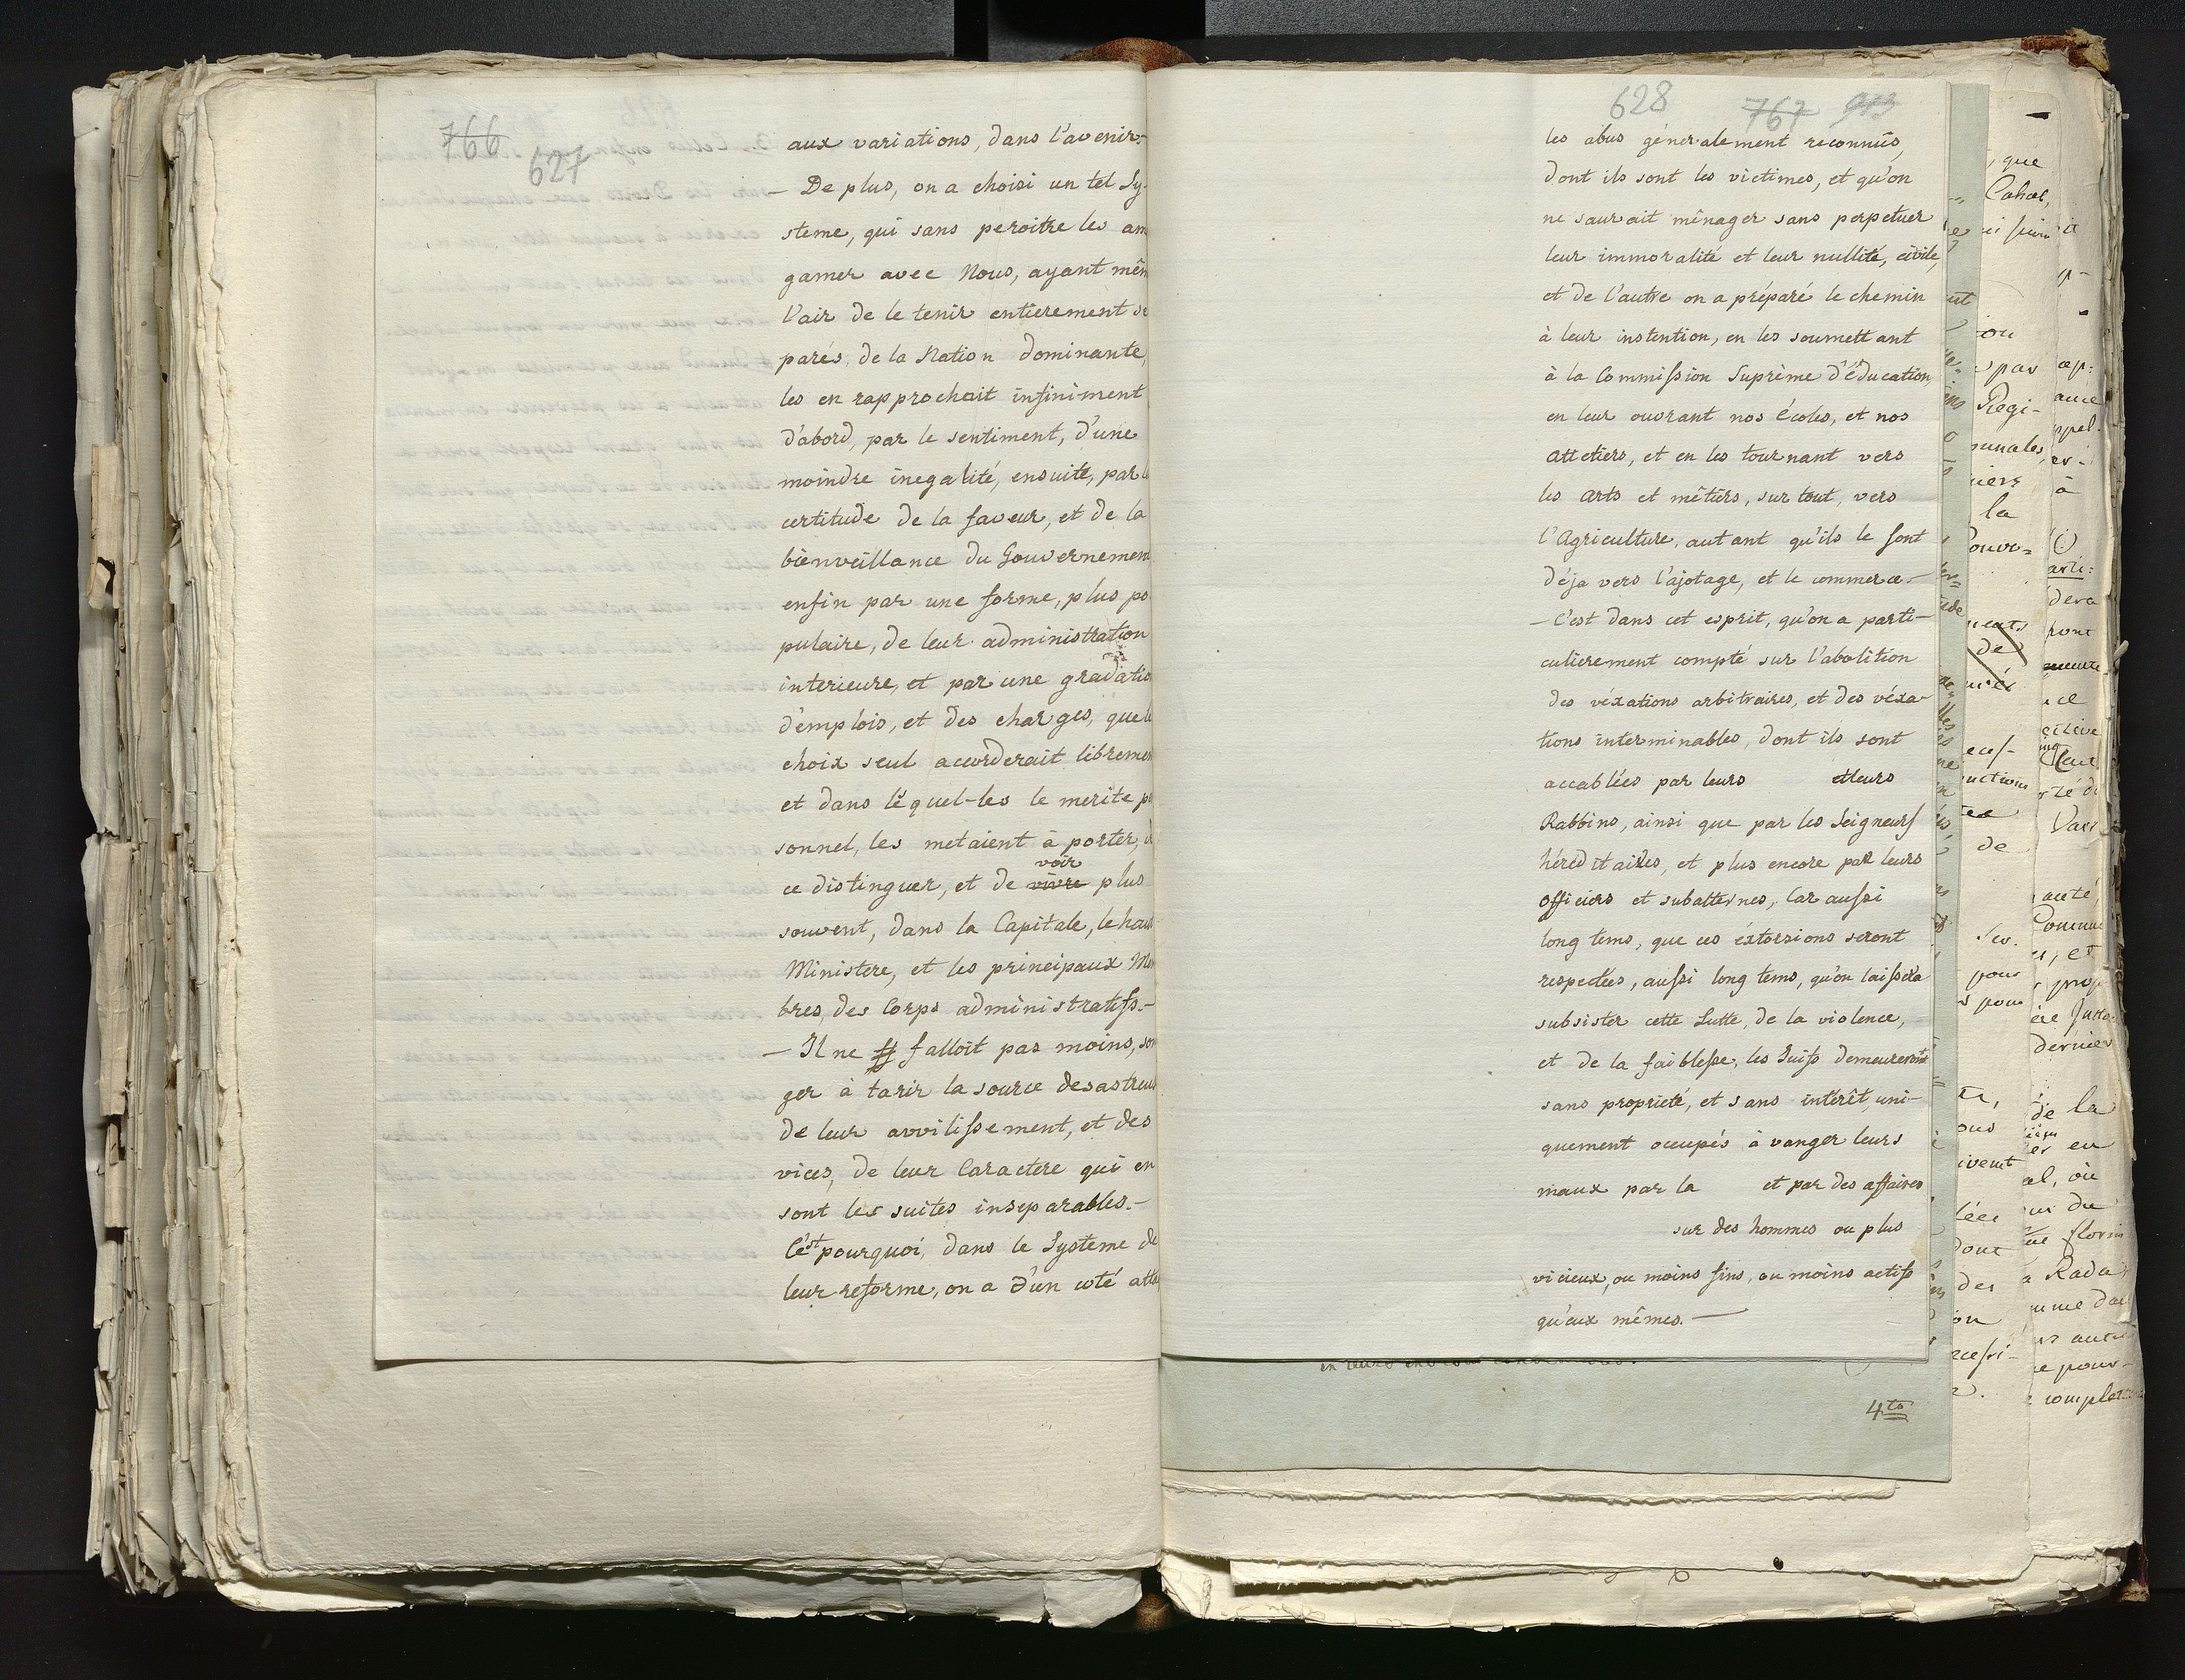 766
627
aux variations, dans l'avenir.-
— De plus, on a choisi un tel Sy-
steme, qui sans peroitre les am
gamer avec Nous, ayant mêm
l'air de le tenir entierement se
parés, de la Nation dominante,
les en rapprochait infiniment
d'abord, par le sentiment, d'une
moindre inegalité, ensuite, par l
certitude de la faveur, et de la
bienveillance du Gouvernemen
enfin par une forme, plus po
pulaire, de leur administration
interieure, et par une gradatio
d'emplois, et des charges, que le
choix seul accorderait libremen
et dans léquel-les le merite pe
sonnel, les metaient à porter, d
voir
ce distinguer, et de vivre plus
souvent, dans la Capitale, le haut
Ministere, et les principaux Me
bres, des Corps administratifs.-
— Il ne falloit pas moins, son
ger à tarir la source desastreus
de leur avvilissement, et des
vices, de leur Caractere qui en
sont les suites inseparables.-
C'est pourquoi, dans le Systeme de
leur reforme, on a d'un coté atta
628 767
les abus géneralement reconnûs,
dont ils sont les victimes, et qu'on
ne saurait ménager sans perpetuer
leur immoralité et leur nullité, civile,
et de l'autre on a préparé le chemin
à leur instention, en les soumettant
à la Commission Suprème d'éducation
en leur ouvrant nos écoles, et nos
atteliers, et en les tournant vers
les arts et métiérs, sur tout, vers
l'Agriculture, autant qu'ils le sont
déja vers l'ajotage, et le commerce.-
— C'est dans cet esprit, qu'on a parti-
culierement compté sur l'abolition
des véxations arbitraires, et des véxa-
tions interminables, dont ils sont
accablées par leurs et leurs
Rabbins, ainsi que par les Seigneurs
héréditaires, et plus encore par leurs
officiers et subalternes, Car aussi
long tems, que ces éxtorsions seront
respectées, aussi long tems, qu'on laissera
subsister cette Lutte, de la violence,
et de la faiblesse, les Juifs demeureront
sans proprieté, et sans interêt, uni-
quement occupés à vanger leurs
maux par la et par des affaires
sur des hommes ou plus
vicieux, ou moins fins, ou moins actifs
qu'eux mêmes. —
4to